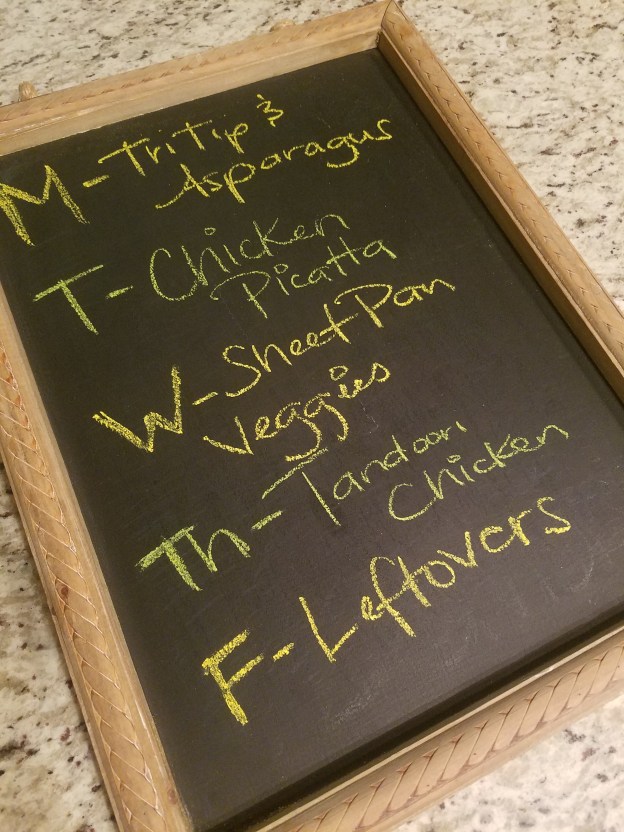 M-TriTip &
Asparagus
T-Chicken
Picatta
W-Sheet Pan
Veggies
Th-Tandoori
Chicken
F-Leftovers